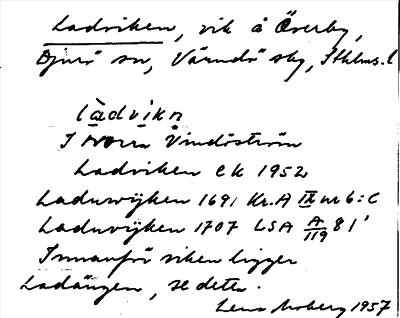 Ladviken, vik å Överby,
Djurö sn, Värmdö sky, Sthlms. l
làdvikn
I Norra Vindöström
Ladviken EK 1952
Laduwijken 1691 Kr.A IX nr 6:C
Laduvijken 1707 LSA A/119 81'
Innanför viken ligger
Ladängen, se detta.
Lena Moberg 1957